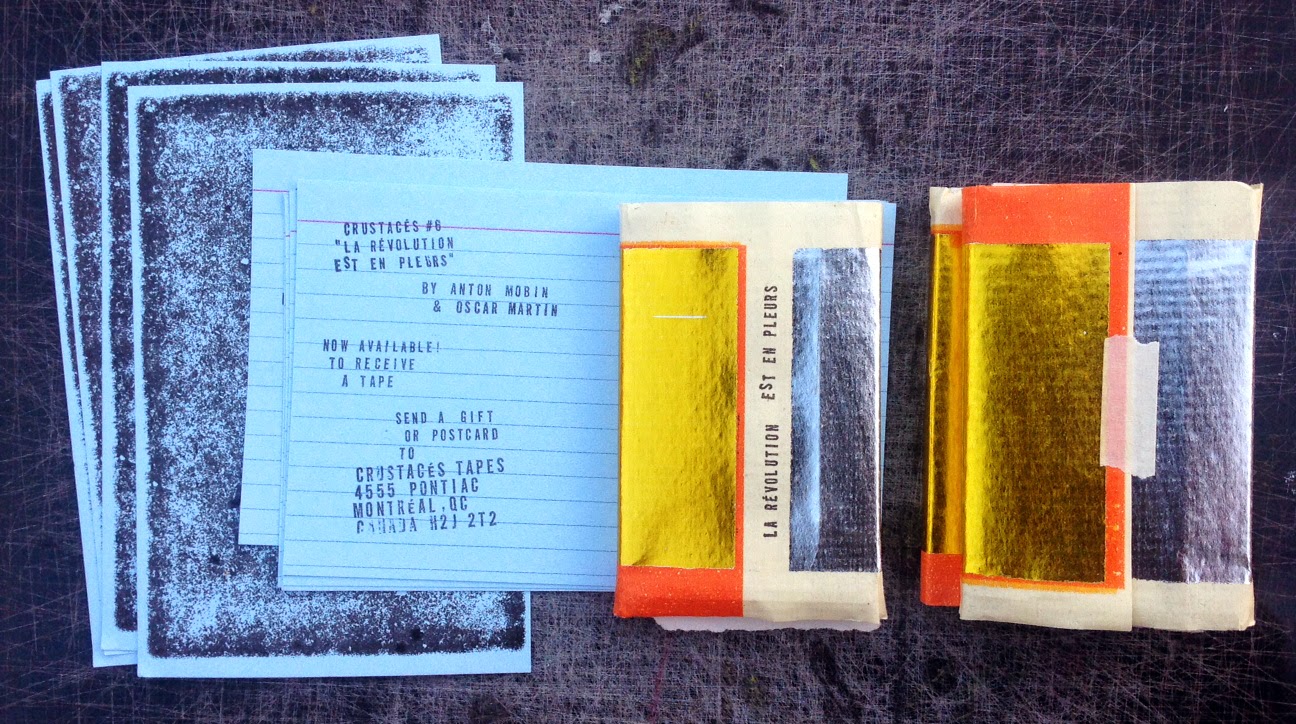 CRUSTACÉS #6
"LA RÉVOLUTION
EST EN PLEURS"
BY ANTON MOBIN
& OSCAR MARTIN
NOW AVAILABLE!
TO RECEIVE
A TAPE
SEND A GIFT
OR POSTCARD
TO
CRUSTACÉS TAPES
4555 PONTIAC
MONTRÉAL, QC
CANADA H2J 2T2
LA RÉVOLUTION EST EN PLEURS